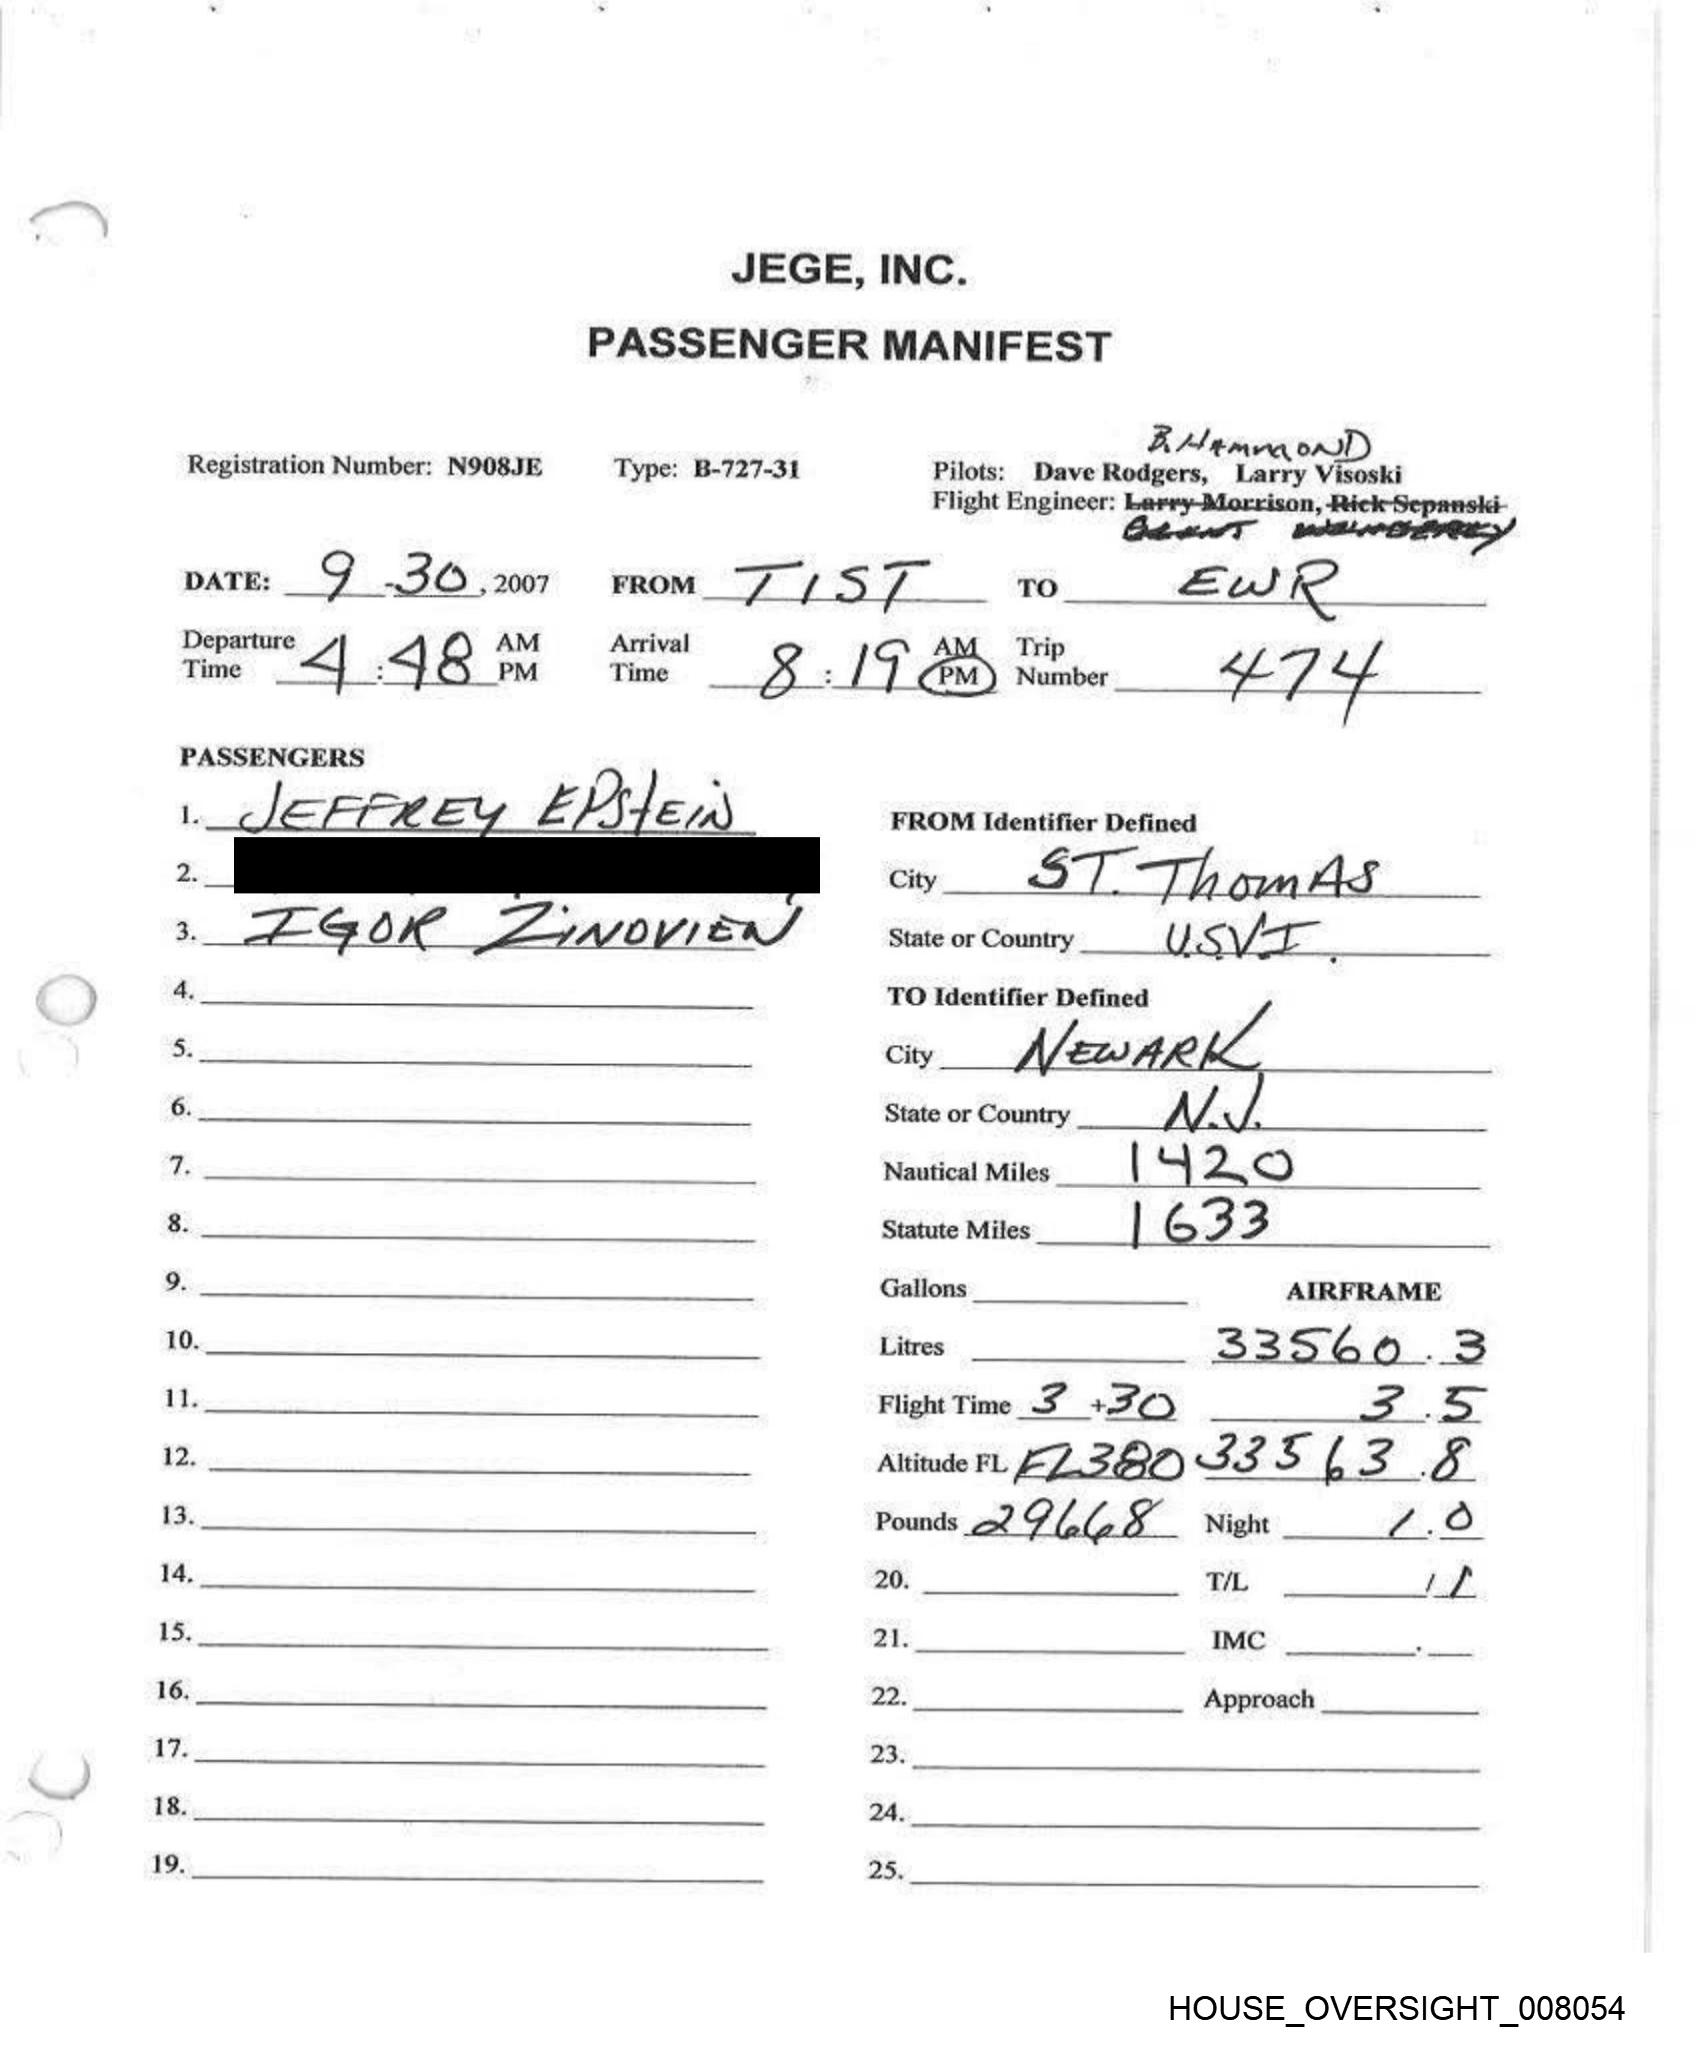 JEGE, INC.
PASSENGER MANIFEST
B. HAMMOND
Registration Number: N908JE Type: B-727-31 Pilots: Dave Rodgers, Larry Visoski
Flight Engineer: Larry Morrison, Rick Sepanski
DATE: 9-30, 2007 FROM TIST TO EWR
Departure Time 4:48 AM PM Arrival Time 8:19 AM PM Trip Number 474
PASSENGERS
1. JEFFREY EPSTEIN
FROM Identifier Defined
2.
City ST. THOMAS
3. IGOR ZINOVIEV
State or Country U.S.V.I.
4.
TO Identifier Defined
5.
City NEWARK
6.
State or Country N.J.
7.
Nautical Miles 1420
8.
Statute Miles 1633
9.
Gallons AIRFRAME
10.
Litres 33560.3
11.
Flight Time 3+30 3.5
12.
Altitude FL FL380 33563.8
13.
Pounds 29668 Night 1.0
14.
20. T/L 1/1
15.
21. IMC .
16.
22. Approach
17.
23.
18.
24.
19.
25.
HOUSE_OVERSIGHT_008054